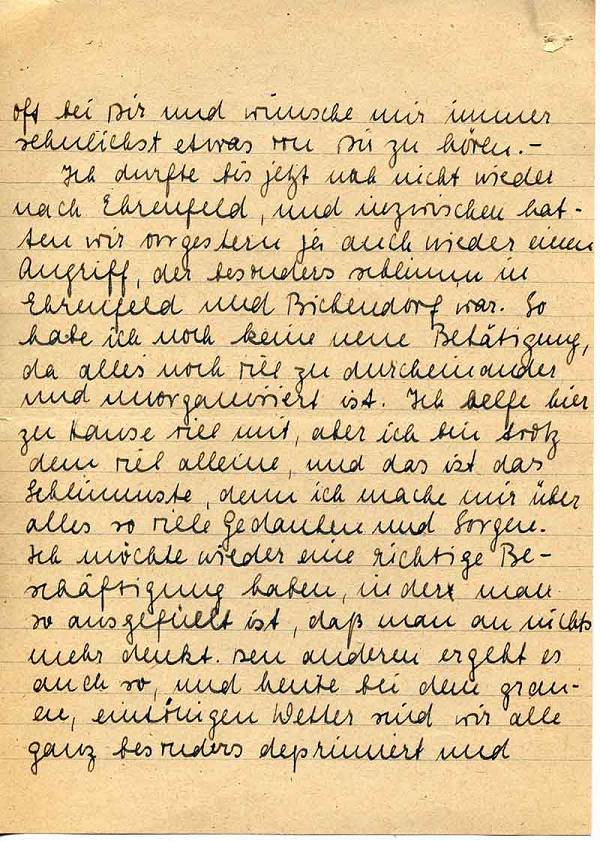 oft bei Dir und wünsche mir immer
sehnlichst etwas von Dir zu hören.–
Ich durfte bis jetzt noch nicht wieder
nach Ehrenfeld, und inzwischen hat-
ten wir vorgestern ja auch wieder einen
Angriff, der besonders schlimm in
Ehrenfeld und Bickendorf war. So
habe ich noch keine neue Betätigung,
da alles noch viel zu durcheinander
und unorganisiert ist. Ich helfe hier
zu Hause viel mit, aber ich bin trotz
dem viel alleine, und das ist das
Schlimmste, denn ich mache mir über
alles so viele Gedanken und Sorgen.
Ich möchte wieder eine richtige Be-
schäftigung haben, in der man
so ausgefüllt ist, daß man an nichts
mehr denkt. Den anderen ergeht es
auch so, und heute bei dem grau-
en, eintönigen Wetter sind wir alle
ganz besonders deprimiert und